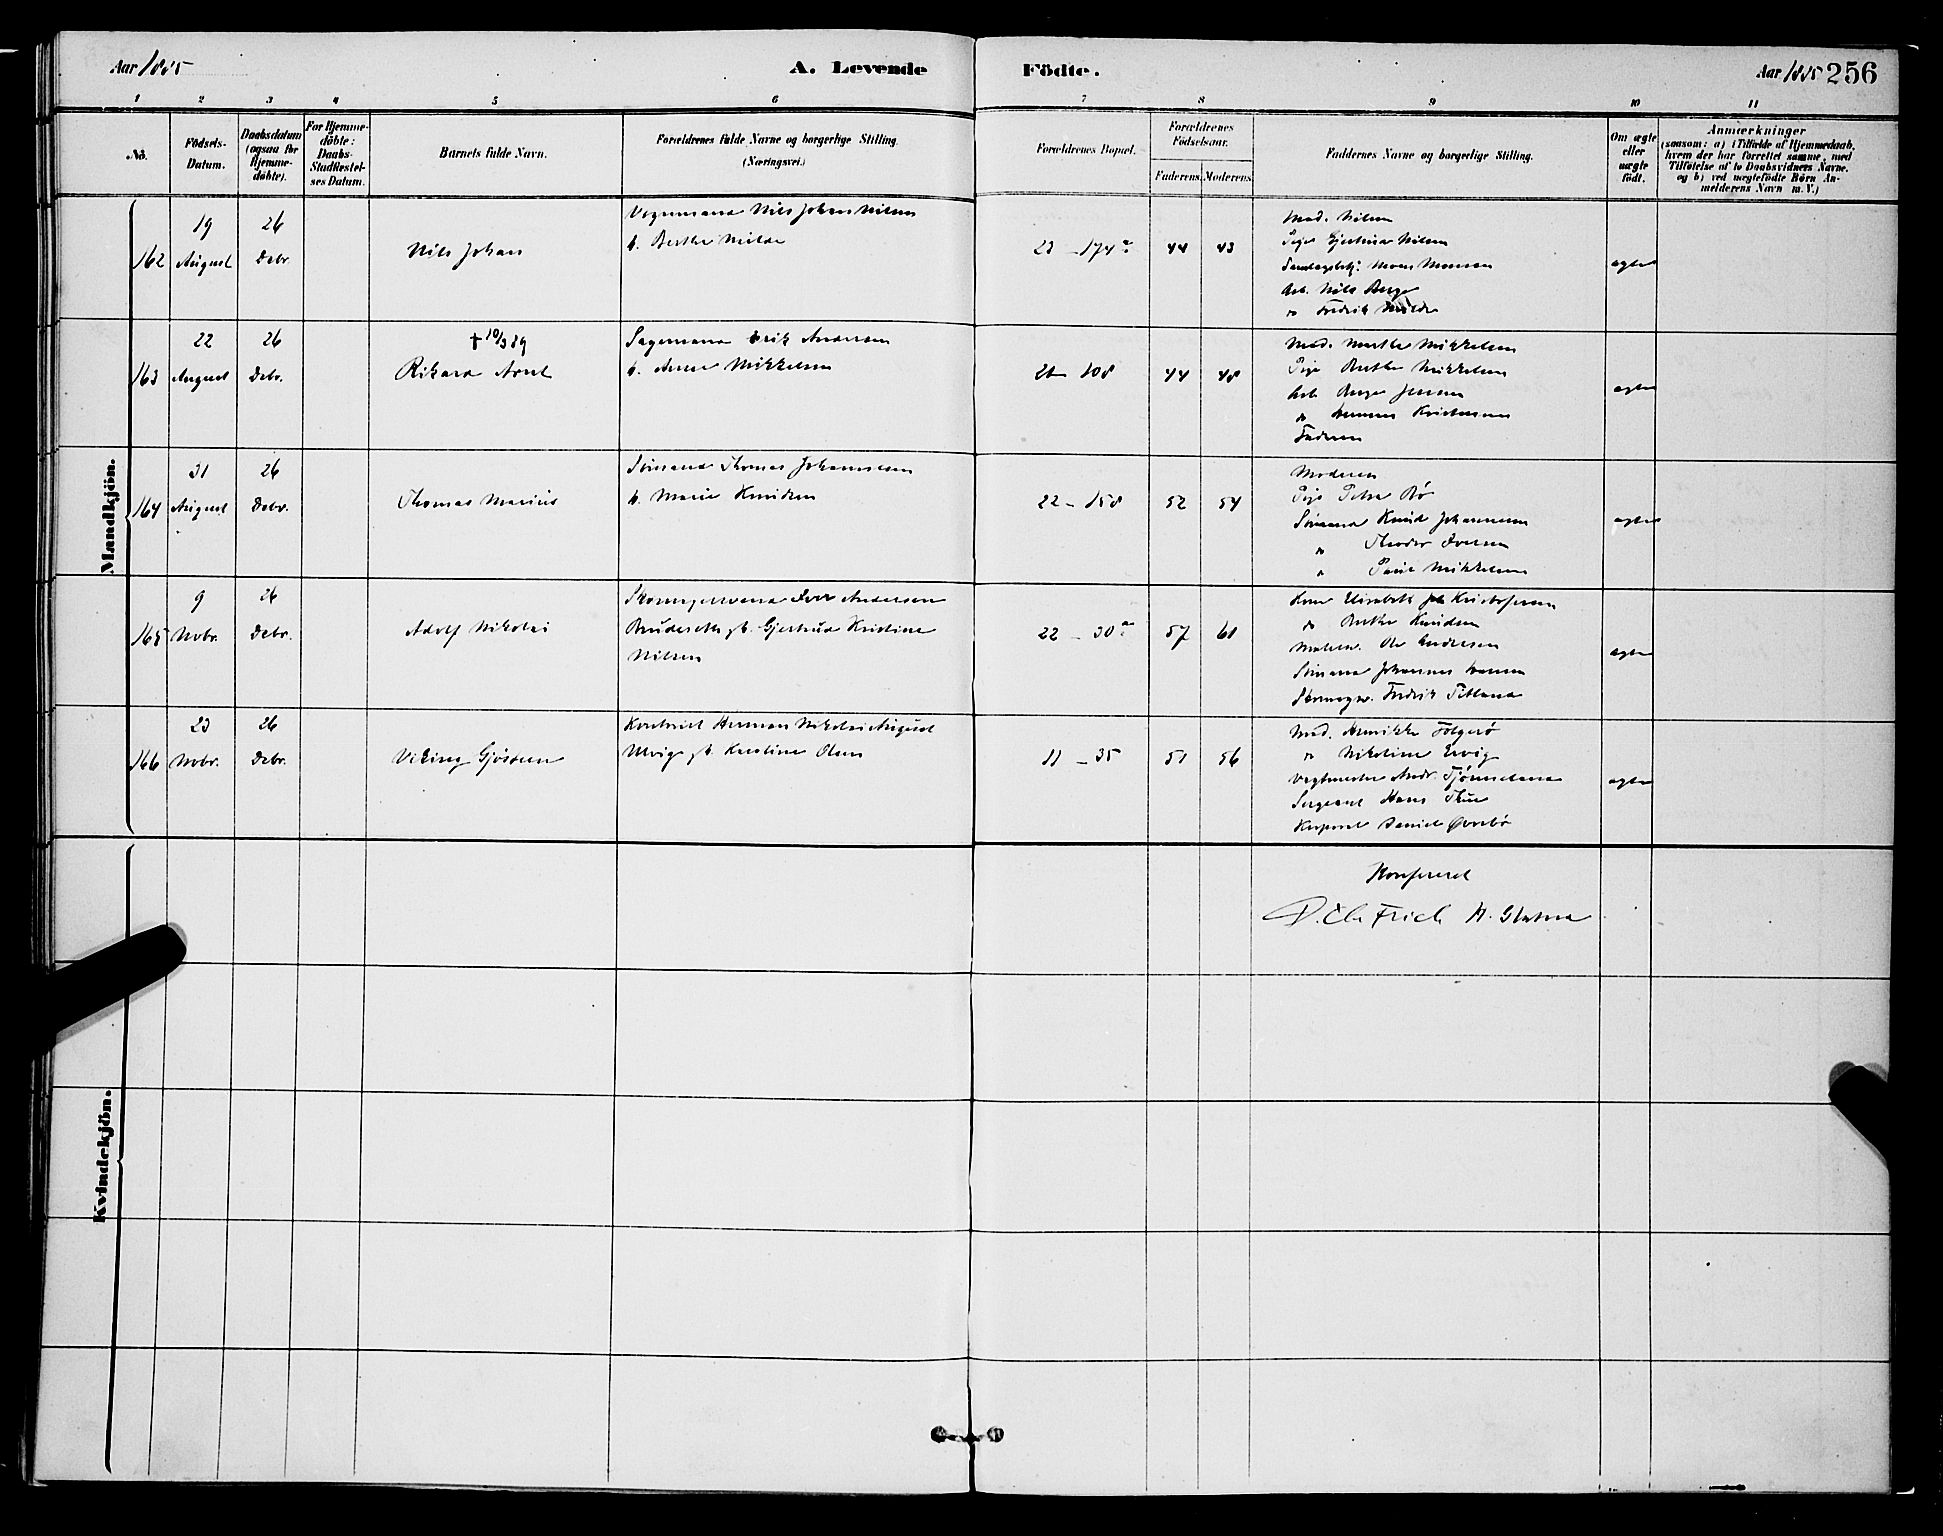 Aar 1885
A. Levende
Födte.
Aar 1885 256
1 2 3 4 5 6 7 8 9 10 11
No.
Födsels-
Datum.
Daabsdatum
(ogsaa for
Hjemme-
döbte).
For Hjemme-
döbte:
Daabs-
Stadfæstel-
ses Datum.
Barnets fulde Navn.
Forældrenes fulde Navne og borgerlige Stilling.
(Næringsvei.)
Forældrenes Bopæl.
Forældrenes
Födselsaar.
Faderens. Moderens.
Faddernes Navne og borgerlige Stilling.
Om ægte
eller
uægte
födt.
Anmærkninger
(saasom: a) i Tilfælde af Hjemmedaab,
hvem der har forrettet samme, med
Tilföielse af to Daabsvidners Navne.
og b) ved uægtefödte Börn An-
melderens Navn m. V.)
Mandkjön.
162
19
August
26
Debr.
Nils Johan
Vognmand Nils Johan Nilsen
h. Berthe Milde
23 - 174 a
44 43
Mad. Nilsen
Pige Gjertine Nilsen
Mons Monsen
Arb. Nils Berge
" Fredrik Milde
ægte
163
22
August
26
Debr.
† 10/3 89
Rikard Arnt
Sagemand Erik Andersen
h. Anne Mikkelsen
21 - 108
44 48
Mad. Marthe Mikkelsen
Pige Berthe Mikkelsen
Arb. Berge Jensen
"
Faderen
ægte
164
31
August
26
Debr.
Thomas Marius
Sömand Thomas Johannesen
h. Marie Knudsen
22 - 158
52 54
Moderen
Pige Petra Bö
Sömand Knud Johannesen
" Theodor Iversen
" Paul Mikkelsen
ægte
165
9
Novbr.
26
Debr.
Adolf Nikolai
Iver Andersen
Bruderoth h. Gjertrud Kristine
Nilsen
22 - 30 a
57 60
Kone Elisabeth Kristofersen
" Berthe Knudsen
Ole Andersen
Sömand Johannes Hansen
Fredrik Titland
ægte
166
23
Novbr.
26
Debr.
Viking Gjösten
Herman Nikolai August
Ulvig h. Karoline Olsen
11 - 35
51 56
Mad. Henrikke Folgerö
" Nikoline Ervig
Vagtmester Andr. Tjönneland
Sergeant Hans Thue
Korporal Daniel Övrebö
ægte
Kvindekjön.
Konfereret